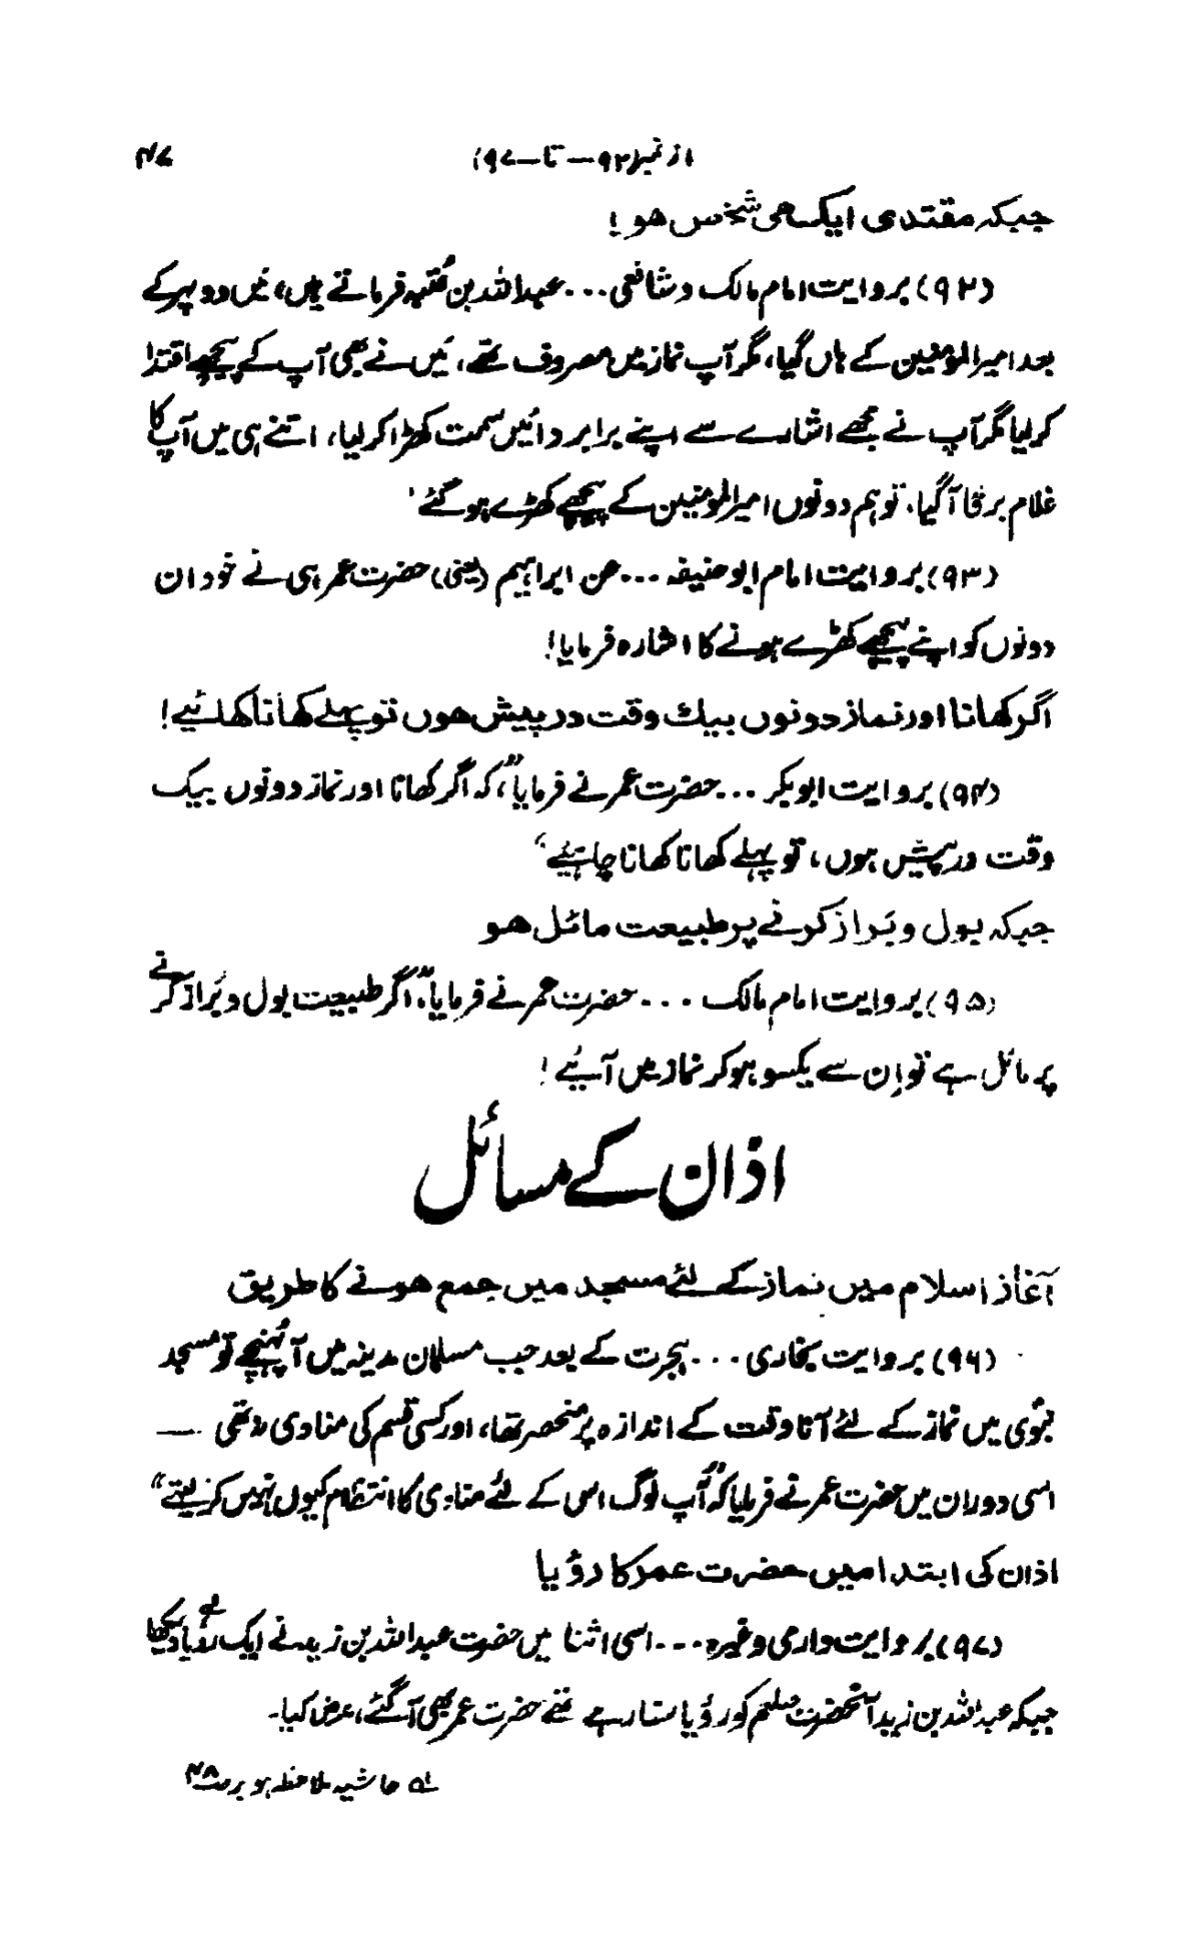 از نمبر ۹۲ — تا — ۹۷)
۴۷
جبکہ مقتدی ایک ھی شخص ھو!
(۹۲) بروایت امام مالک و شافعی ... عبداللہ بن عُتبہ فرماتے ہیں، مَیں دوپہر کے
بعد امیرالمؤمنین کے ہاں گیا، مگر آپ نماز میں مصروف تھے، مَیں نے بھی آپ کے پیچھے اقتدا
کر لیا مگر آپ نے مجھے اشارے سے اپنے برابر دائیں سمت کھڑا کر لیا، اتنے ہی میں آپ کا
غلام برفا آ گیا، تو ہم دونوں امیرالمؤمنین کے پیچھے کھڑے ہو گئے '
(۹۳) بروایت امام ابو حنیفہ ... عن ابراہیم (یعنی) حضرت عمر ہی نے خود ان
دونوں کو اپنے پیچھے کھڑے ہونے کا اشارہ فرمایا!
اگر کھانا اور نماز دونوں بیک وقت درپیش ھوں تو پہلے کھانا کھائیے!
(۹۴) بروایت ابوبکر ... حضرت عمر نے فرمایا "کہ اگر کھانا اور نماز دونوں بیک
وقت درپیش ہوں، تو پہلے کھانا کھانا چاہئیے"
جبکہ بول و بَراز کرنے پر طبیعت مائل ھو
(۹۵) بروایت امام مالک ... حضرت عمر نے فرمایا "اگر طبیعت بول و بَراز کرنے
پر مائل ہے تو اِن سے یکسو ہو کر نماز میں آئیے!
اذان کے مسائل
آغاز اسلام میں نماز کے لئے مسجد میں جمع ھونے کا طریق
(۹۶) بروایت بخاری ... ہجرت کے بعد جب مسلمان مدینہ میں آ پہُنچے تو مسجد
نبوی میں نماز کے لئے آنا وقت کے اندازہ پر منحصر تھا، اور کسی قسم کی منادی نہ تھی —
اسی دوران میں حضرت عمر نے فرمایا کہ "آپ لوگ اس کے لئے منادی کا انتظام کیوں نہیں کر لیتے"
اذان کی ابتدا میں حضرت عمر کا رؤیا
(۹۷) بروایت دارمی وغیرہ ... اسی اثنا میں حضرت عبداللہ بن زید نے ایک رؤیا دیکھا لہ
جبکہ عبداللہ بن زید آنحضرت صلعم کو رؤیا سنا رہے تھے حضرت عمر بھی آ گئے، عرض کیا۔
لہ حاشیہ ملاحظہ ہو بر صـ ۴۸